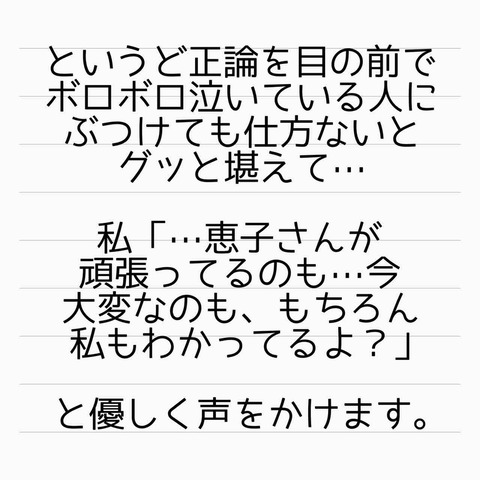 というど正論を目の前で
ボロボロ泣いている人に
ぶつけても仕方ないと
グッと堪えて…
私「…恵子さんが
頑張ってるのも…今
大変なのも、もちろん
私もわかってるよ？」
と優しく声をかけます。